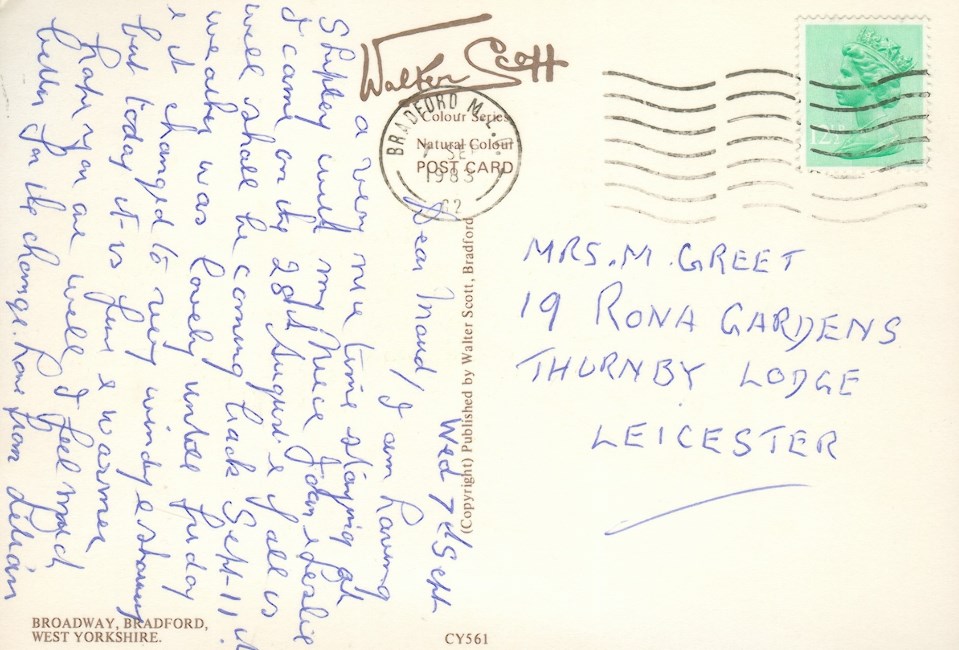 Walter Scott
Colour Series
Natural Colour
POST CARD
BRADFORD
SEP
1983
12½
Wed 7th Sept
Dear Maud, I am having
a very nice time staying at
Shipley with my Niece Joan & Leslie
I came on the 28th August & if all is
well shall be coming back Sept-11
weather was lovely untill friday
& it changed to very windy & stormy
but today it is fine & warmer
hoping you are well, I feel much
better for the change. Love from Lilian
MRS. M. GREET
19 RONA GARDENS
THURNBY LODGE
LEICESTER
(Copyright) Published by Walter Scott, Bradford
BROADWAY, BRADFORD,
WEST YORKSHIRE.
CY561